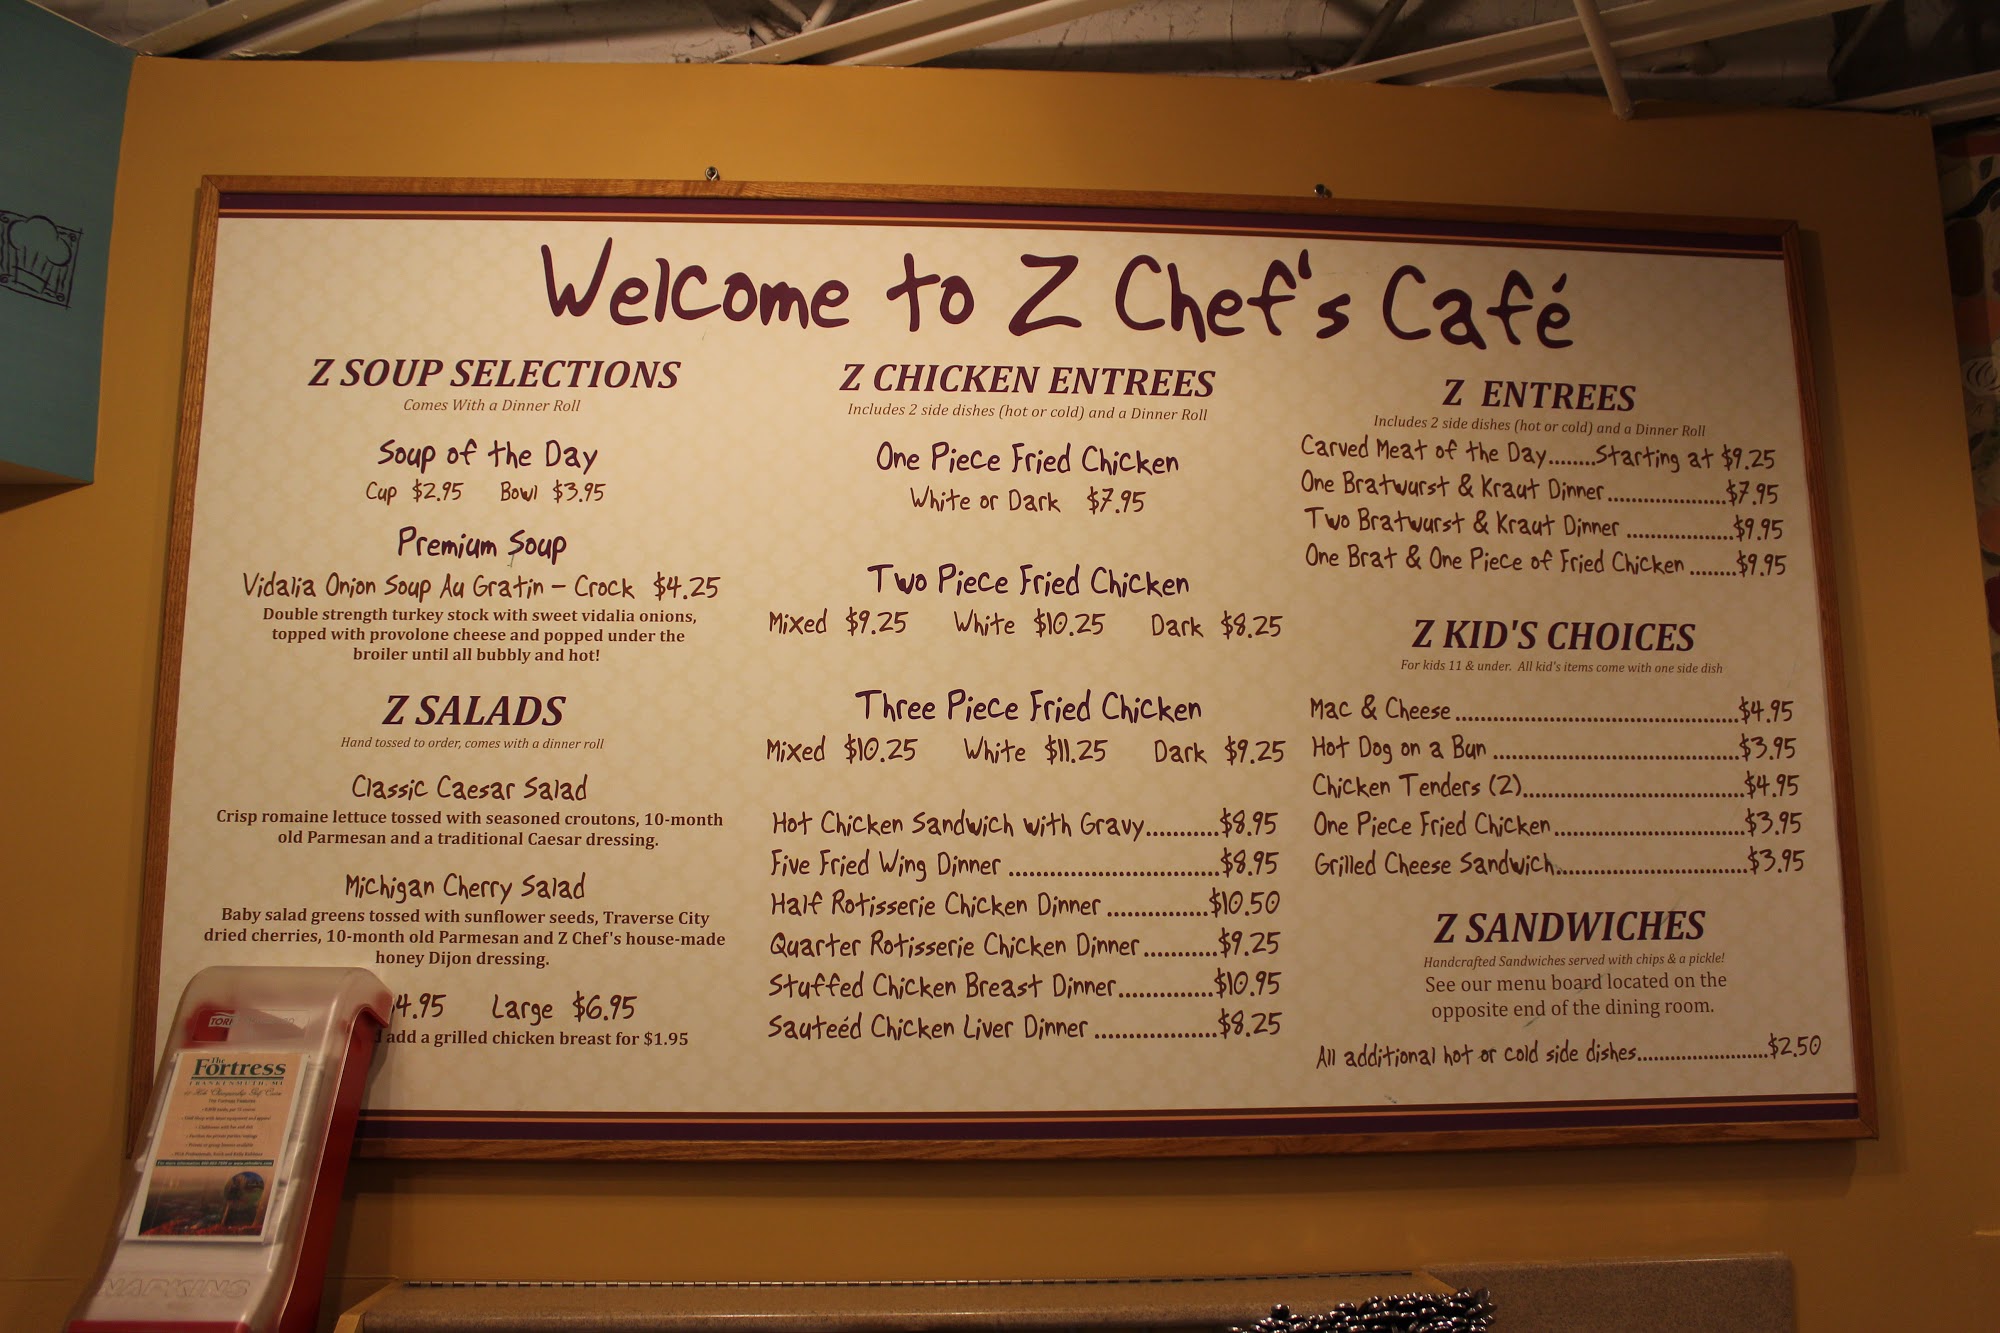 Welcome to Z Chef's Café
Z SOUP SELECTIONS
Comes With a Dinner Roll
Soup of the Day
Cup $2.95 Bowl $3.95
Premium Soup
Vidalia Onion Soup Au Gratin – Crock $4.25
Double strength turkey stock with sweet vidalia onions,
topped with provolone cheese and popped under the
broiler until all bubbly and hot!
Z SALADS
Hand tossed to order, comes with a dinner roll
Classic Caesar Salad
Crisp romaine lettuce tossed with seasoned croutons, 10-month
old Parmesan and a traditional Caesar dressing.
Michigan Cherry Salad
Baby salad greens tossed with sunflower seeds, Traverse City
dried cherries, 10-month old Parmesan and Z Chef's house-made
honey Dijon dressing.
4.95 Large $6.95
add a grilled chicken breast for $1.95
Z CHICKEN ENTREES
Includes 2 side dishes (hot or cold) and a Dinner Roll
One Piece Fried Chicken
White or Dark $7.95
Two Piece Fried Chicken
Mixed $9.25 White $10.25 Dark $8.25
Three Piece Fried Chicken
Mixed $10.25 White $11.25 Dark $9.25
Hot Chicken Sandwich with Gravy...........$8.95
Five Fried Wing Dinner ................................$8.95
Half Rotisserie Chicken Dinner ...............$10.50
Quarter Rotisserie Chicken Dinner...........$9.25
Stuffed Chicken Breast Dinner..............$10.95
Sauteéd Chicken Liver Dinner ..................$8.25
Z ENTREES
Includes 2 side dishes (hot or cold) and a Dinner Roll
Carved Meat of the Day........Starting at $9.25
One Bratwurst & Kraut Dinner....................$7.95
Two Bratwurst & Kraut Dinner ..................$9.95
One Brat & One Piece of Fried Chicken ........$9.95
Z KID'S CHOICES
For kids 11 & under. All kid's items come with one side dish
Mac & Cheese ................................................$4.95
Hot Dog on a Bun ..........................................$3.95
Chicken Tenders (2)......................................$4.95
One Piece Fried Chicken................................$3.95
Grilled Cheese Sandwich................................$3.95
Z SANDWICHES
Handcrafted Sandwiches served with chips & a pickle!
See our menu board located on the
opposite end of the dining room.
All additional hot or cold side dishes.......................$2.50
The
Fortress
FRANKENMUTH, MI
NAPKINS